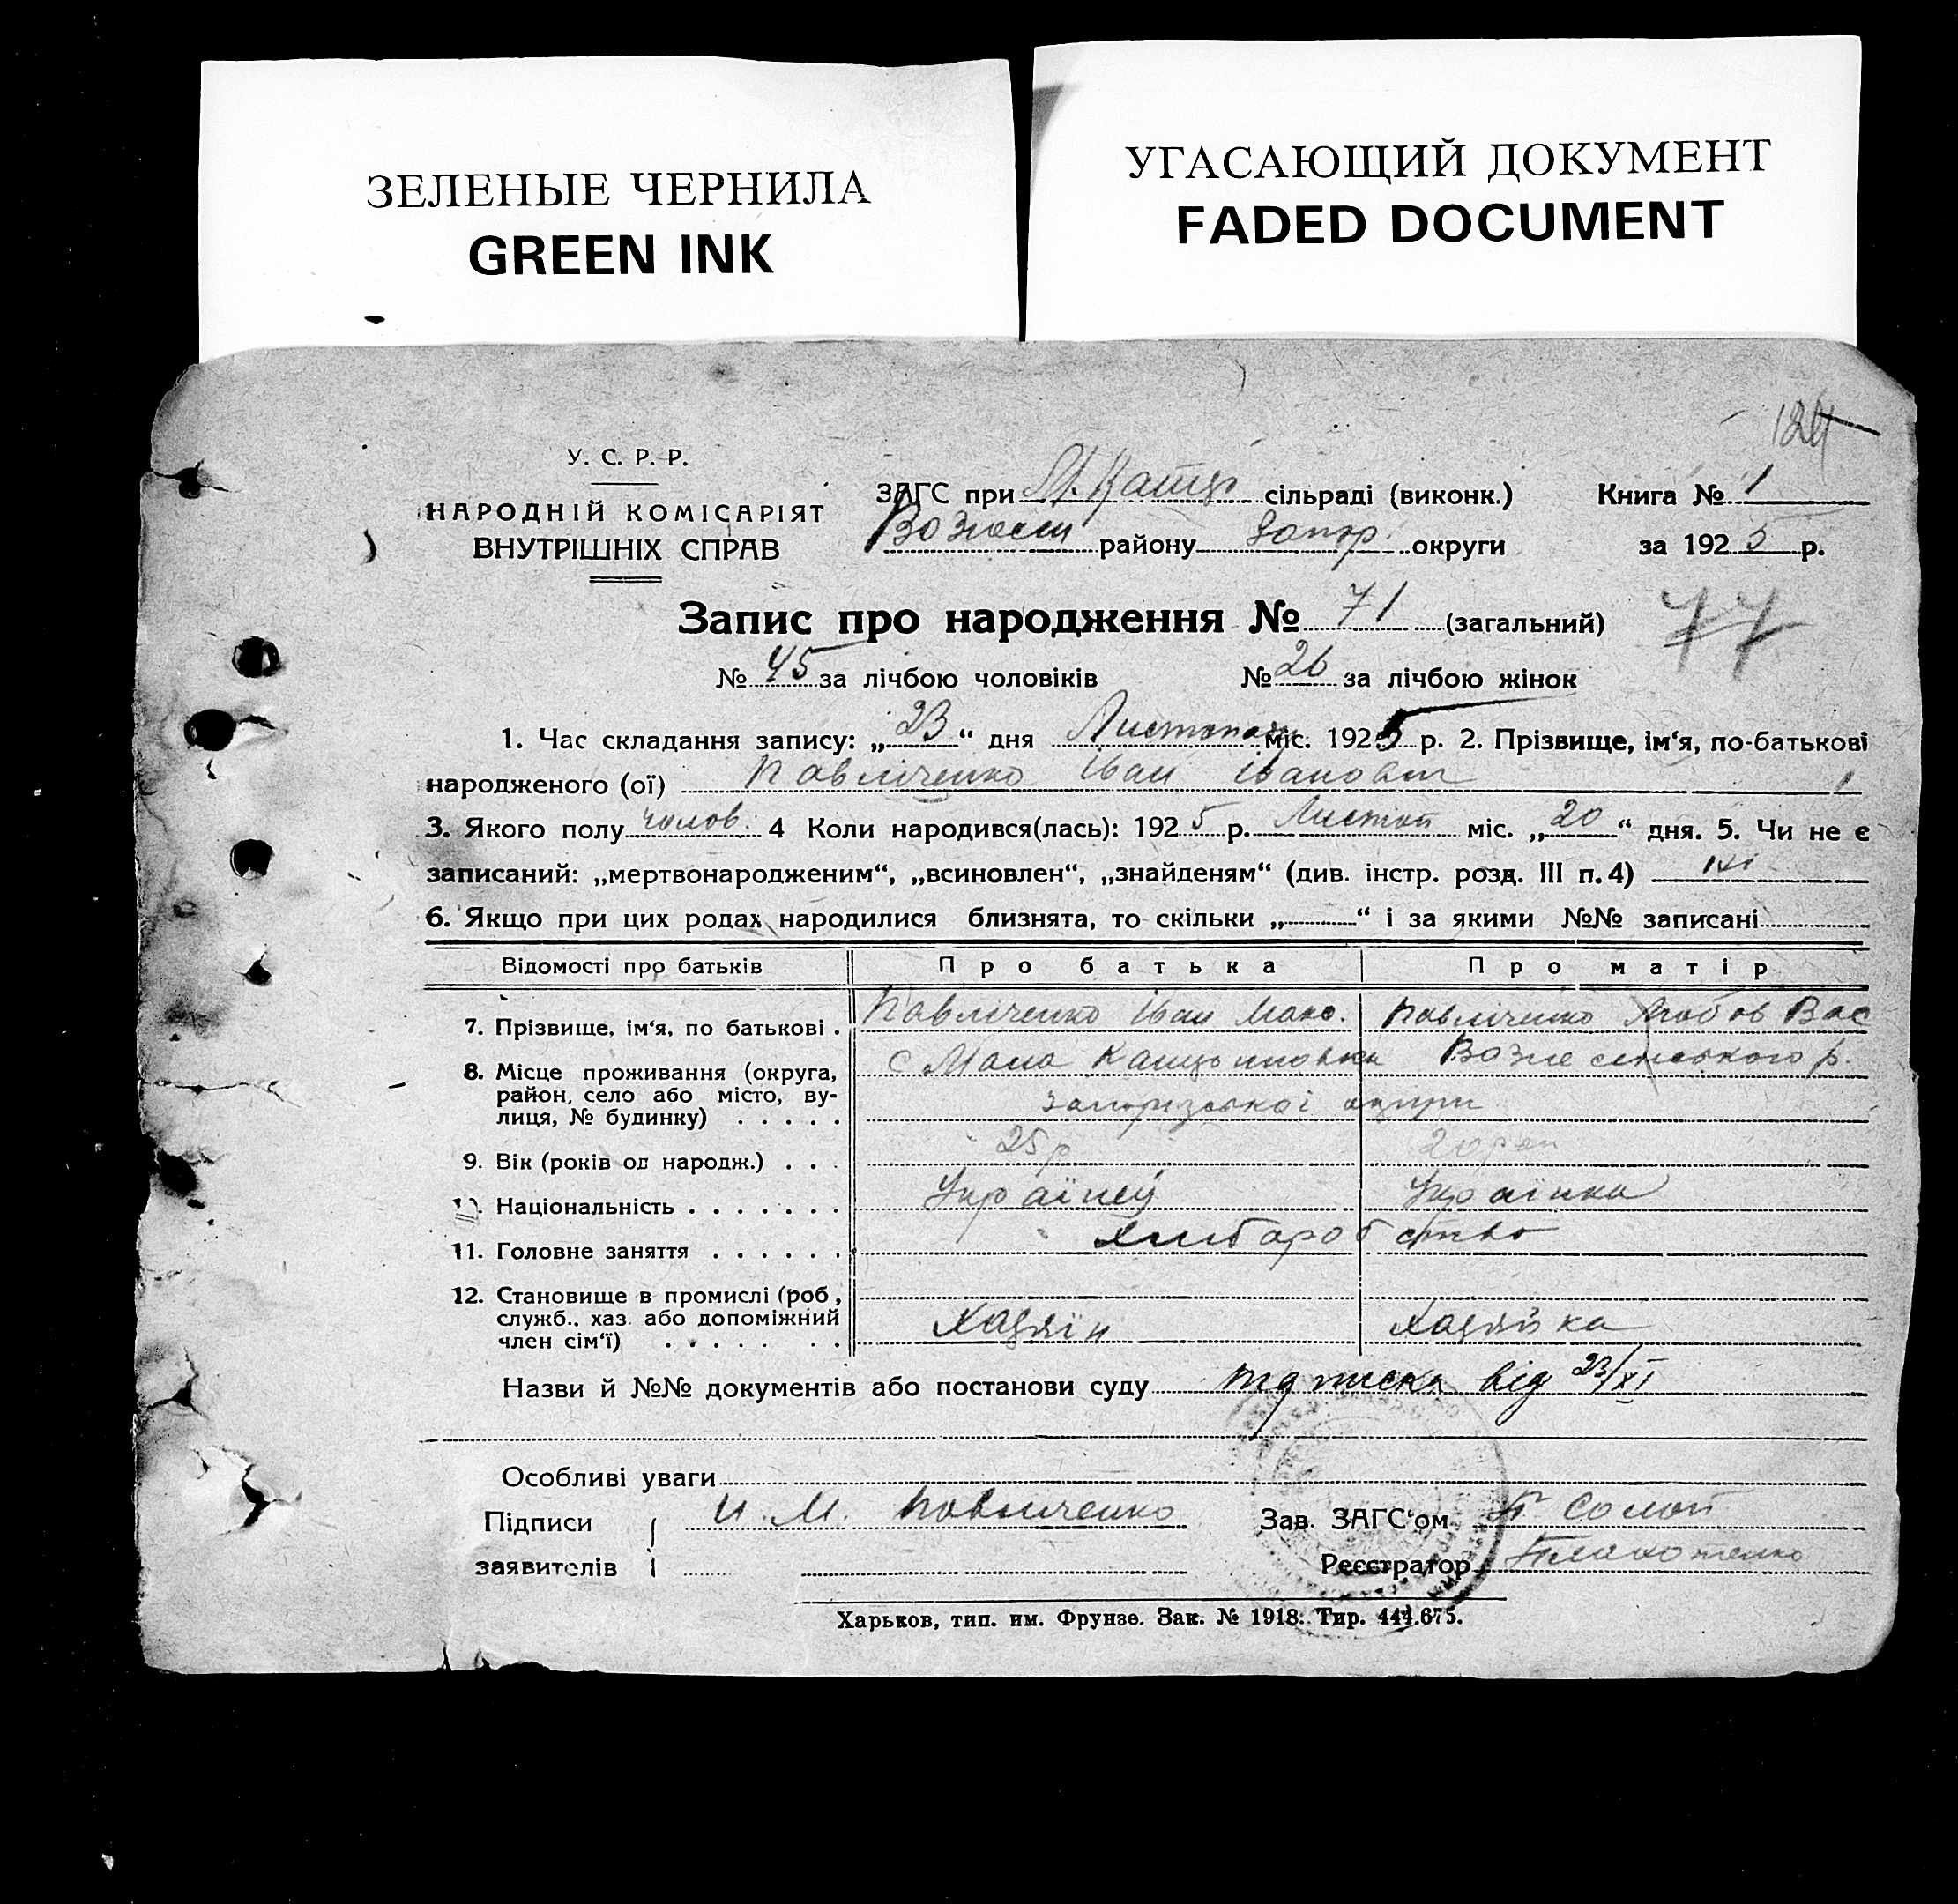 ЗЕЛЕНЫЕ ЧЕРНИЛА
GREEN INK
УГАСАЮЩИЙ ДОКУМЕНТ
FADED DOCUMENT
У. С. Р. Р.
НАРОДНІЙ КОМІСАРІЯТ
ВНУТРІШНІХ СПРАВ
124
ЗАГС при М. Катщ сільраді (виконк.) Книга № 1
Вознесен району Запор. округи за 1925 р.
Запис про народження № 71 (загальний) 77
№ 45 за лічбою чоловіків № 26 за лічбою жінок
1. Час складання запису: „23“ дня Листопад міс. 1925 р. 2. Прізвище, ім‘я, по-батькові
народженого (ої) Павліченко Іван Іванович
3. Якого полу чолов. 4 Коли народився(лась): 1925 р. Листоп міс. „20“ дня. 5. Чи не є
записаний: „мертвонародженим“, „всиновлен“, „знайденям“ (див. інстр. розд. III п. 4) ні
6. Якщо при цих родах народилися близнята, то скільки „ “ і за якими №№ записані
Відомості про батьків Про батька Про матір
7. Прізвище, ім‘я, по батькові . Павліченко Іван Макс. Павліченко Любов Вас
8. Місце проживання (округа, район, село або місто, вулиця, № будинку) с Мала Катщыновка Вознесенського р.
Запорізької округи
9. Вік (років од народж.) 25 р 20 рок
10. Національність Українец Українка
11. Головне заняття хліборобство
12. Становище в промислі (роб, служб., хаз. або допоміжний член сім‘ї) Хазяїн Хазяйка
Назви й №№ документів або постанови суду підписка від 23/XI
Особливі уваги
Підписи заявителів И. М. Павличенко Зав. ЗАГС‘ом
Реєстратор
Харьков, тип. им. Фрунзе. Зак. № 1918. Тир. 444.675.